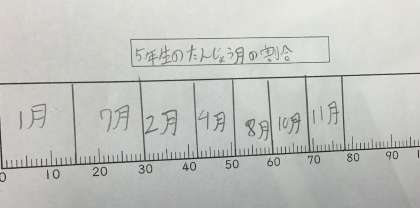 5年生のたんじょう月の割合
1月 7月 2月 4月 8月 10月 11月
0 10 20 30 40 50 60 70 80 90